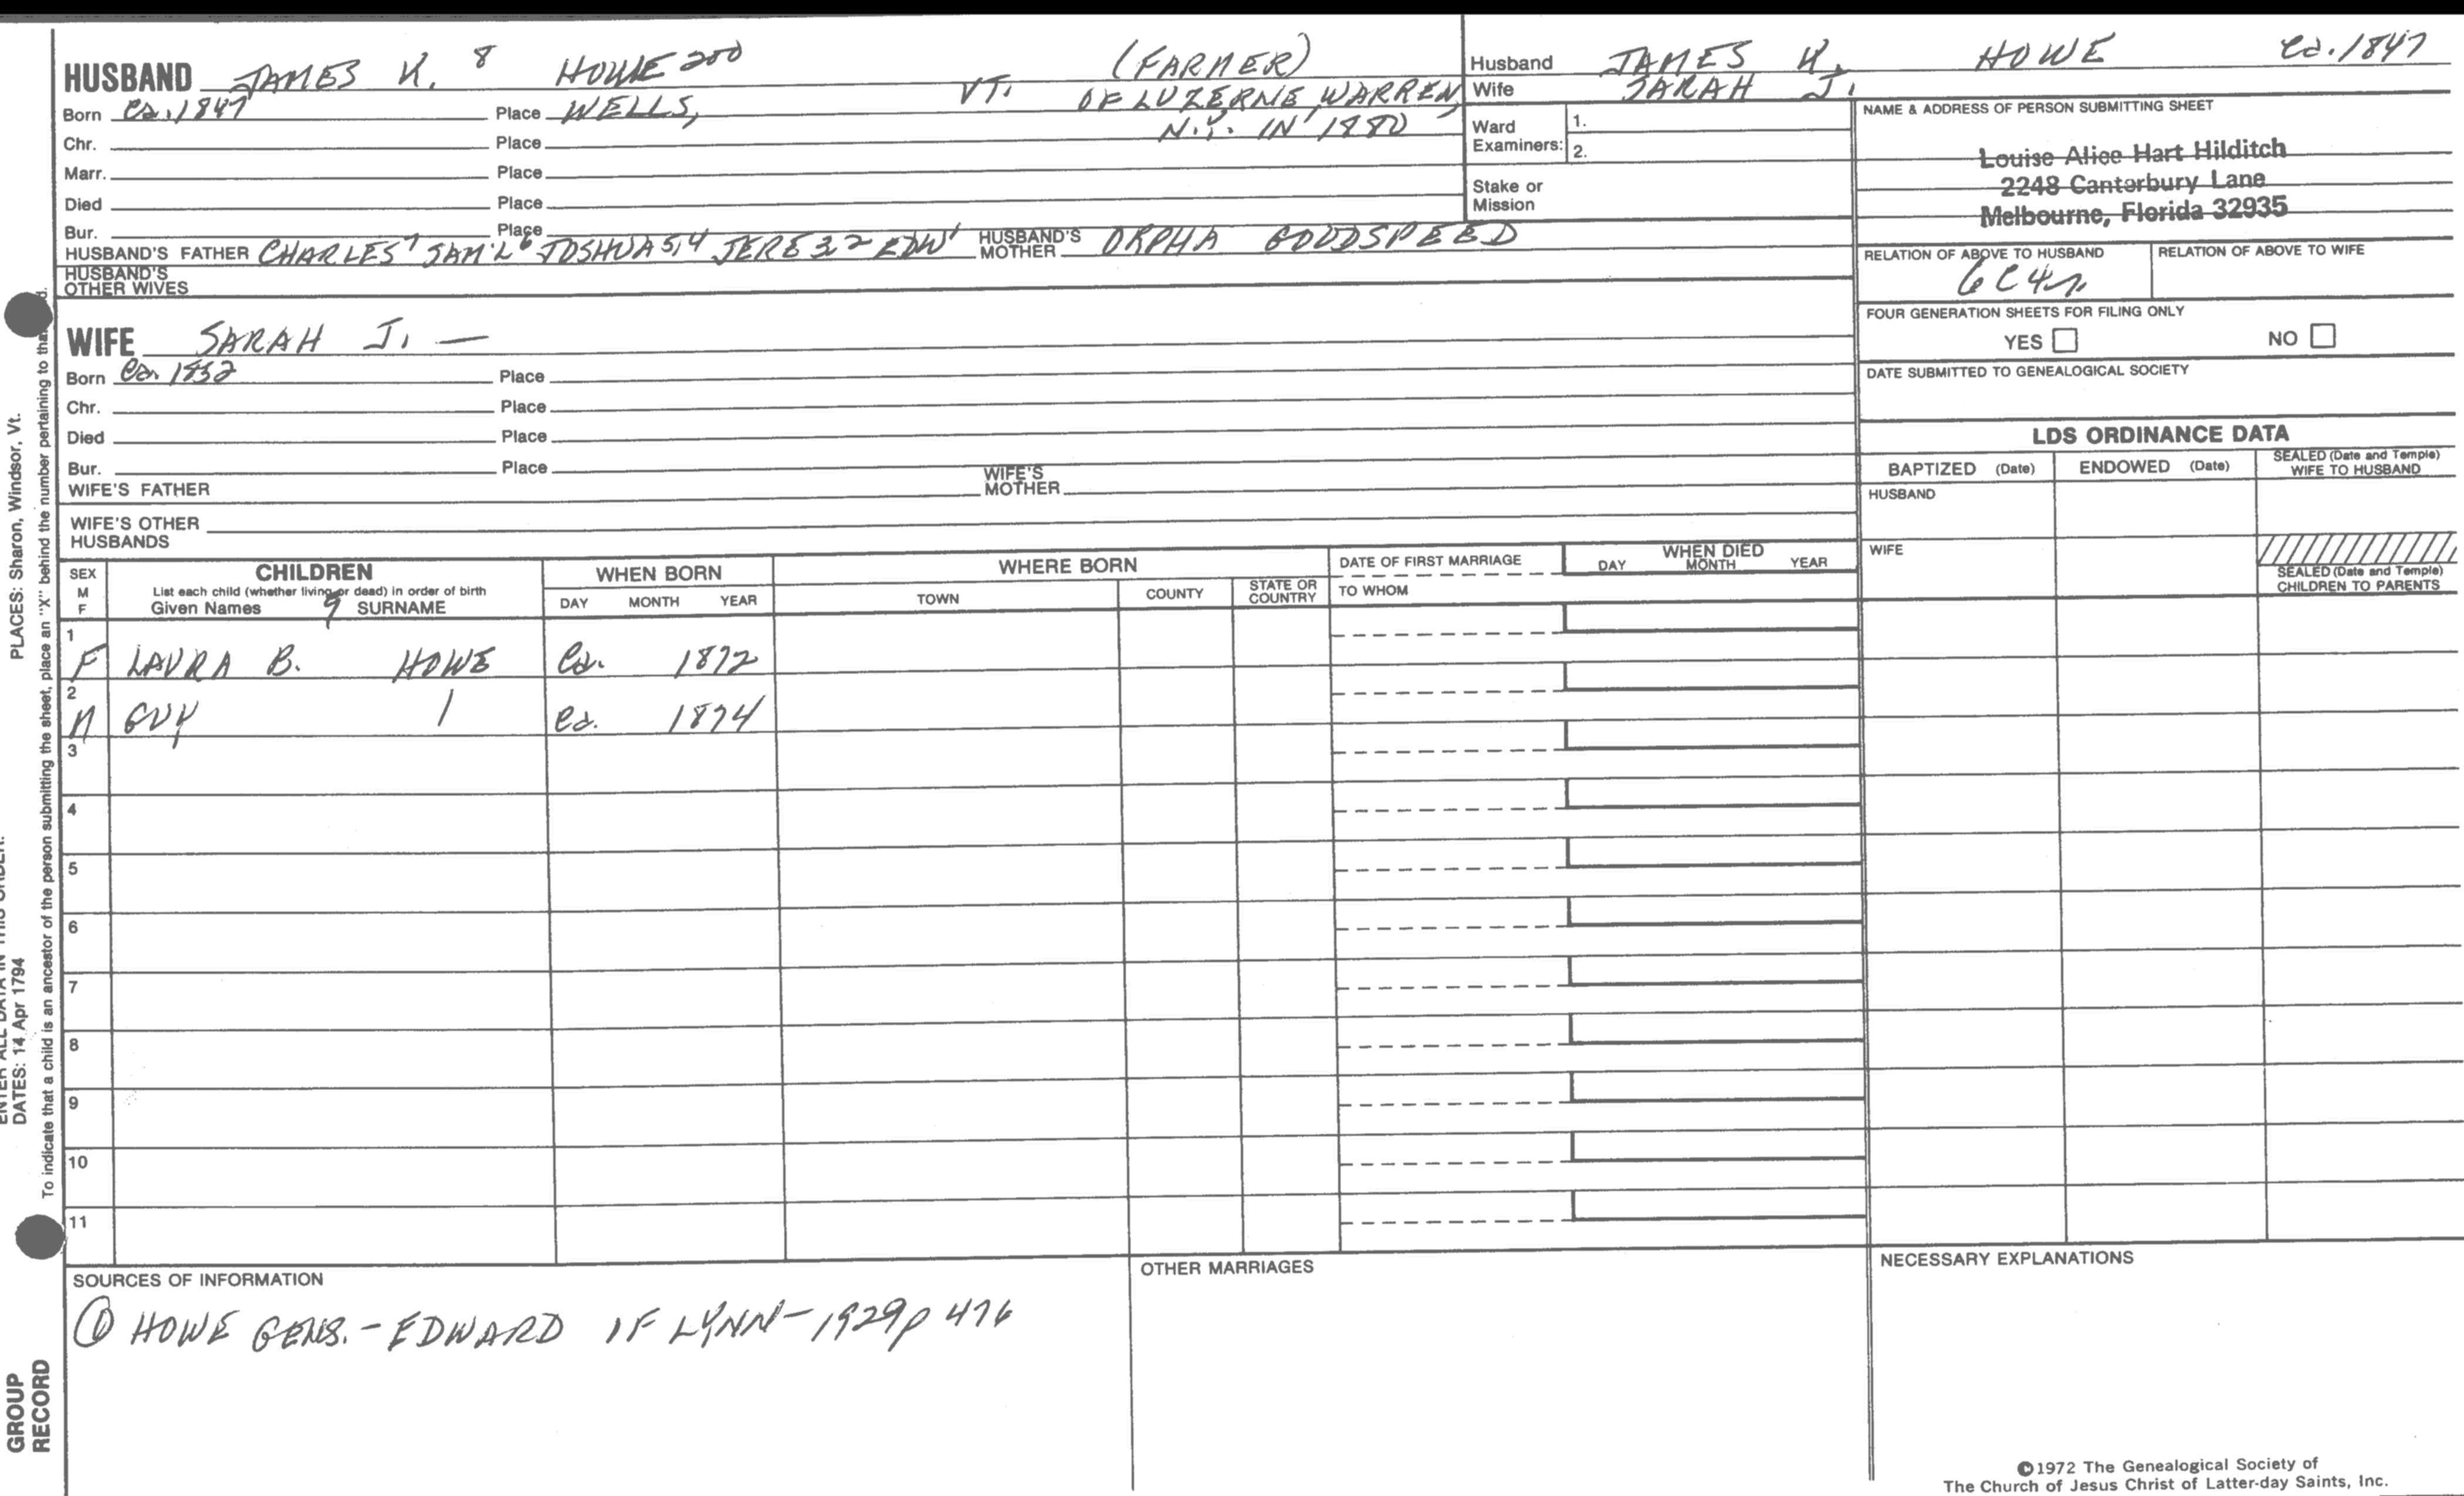 HUSBAND JAMES K. 8 HOWE 200 (FARMER)
Born Ca. 1847 Place WELLS, VT. OF LUZERNE, WARREN,
Chr. Place N.Y. IN 1880
Marr. Place
Died Place
Bur. Place
HUSBAND'S FATHER CHARLES7 SAM'L6 JOSHUA5,4 JERE32 EDW1 HUSBAND'S MOTHER ORPHA GOODSPEED
HUSBAND'S
OTHER WIVES
WIFE SARAH J. —
Born Ca. 1852 Place
Chr. Place
Died Place
Bur. Place
WIFE'S FATHER WIFE'S MOTHER
WIFE'S OTHER
HUSBANDS
Husband JAMES K. HOWE Ca. 1847
Wife SARAH J.
Ward
Examiners: 1.
2.
Stake or
Mission
NAME & ADDRESS OF PERSON SUBMITTING SHEET
Louise Alice Hart Hilditch
2248 Canterbury Lane
Melbourne, Florida 32935
RELATION OF ABOVE TO HUSBAND RELATION OF ABOVE TO WIFE
6C4r
FOUR GENERATION SHEETS FOR FILING ONLY
YES NO
DATE SUBMITTED TO GENEALOGICAL SOCIETY
LDS ORDINANCE DATA
BAPTIZED (Date) ENDOWED (Date) SEALED (Date and Temple)
WIFE TO HUSBAND
HUSBAND
WIFE
SEALED (Date and Temple)
CHILDREN TO PARENTS
SEX
M
F
CHILDREN
List each child (whether living or dead) in order of birth
Given Names 9 SURNAME
WHEN BORN
DAY MONTH YEAR
WHERE BORN
TOWN COUNTY STATE OR
COUNTRY
DATE OF FIRST MARRIAGE
TO WHOM
WHEN DIED
DAY MONTH YEAR
1
F LAURA B. HOWE Ca. 1872
2
M GUY | Ca. 1874
3
4
5
6
7
8
9
10
11
SOURCES OF INFORMATION
① HOWE GENS. - EDWARD OF LYNN - 1929 p 476
OTHER MARRIAGES
NECESSARY EXPLANATIONS
©1972 The Genealogical Society of
The Church of Jesus Christ of Latter-day Saints, Inc.
PLACES: Sharon, Windsor, Vt.
To indicate that a child is an ancestor of the person submitting the sheet, place an "X" behind the number pertaining to that
ENTER ALL DATA IN THIS ORDER:
DATES: 14 Apr 1794
GROUP
RECORD